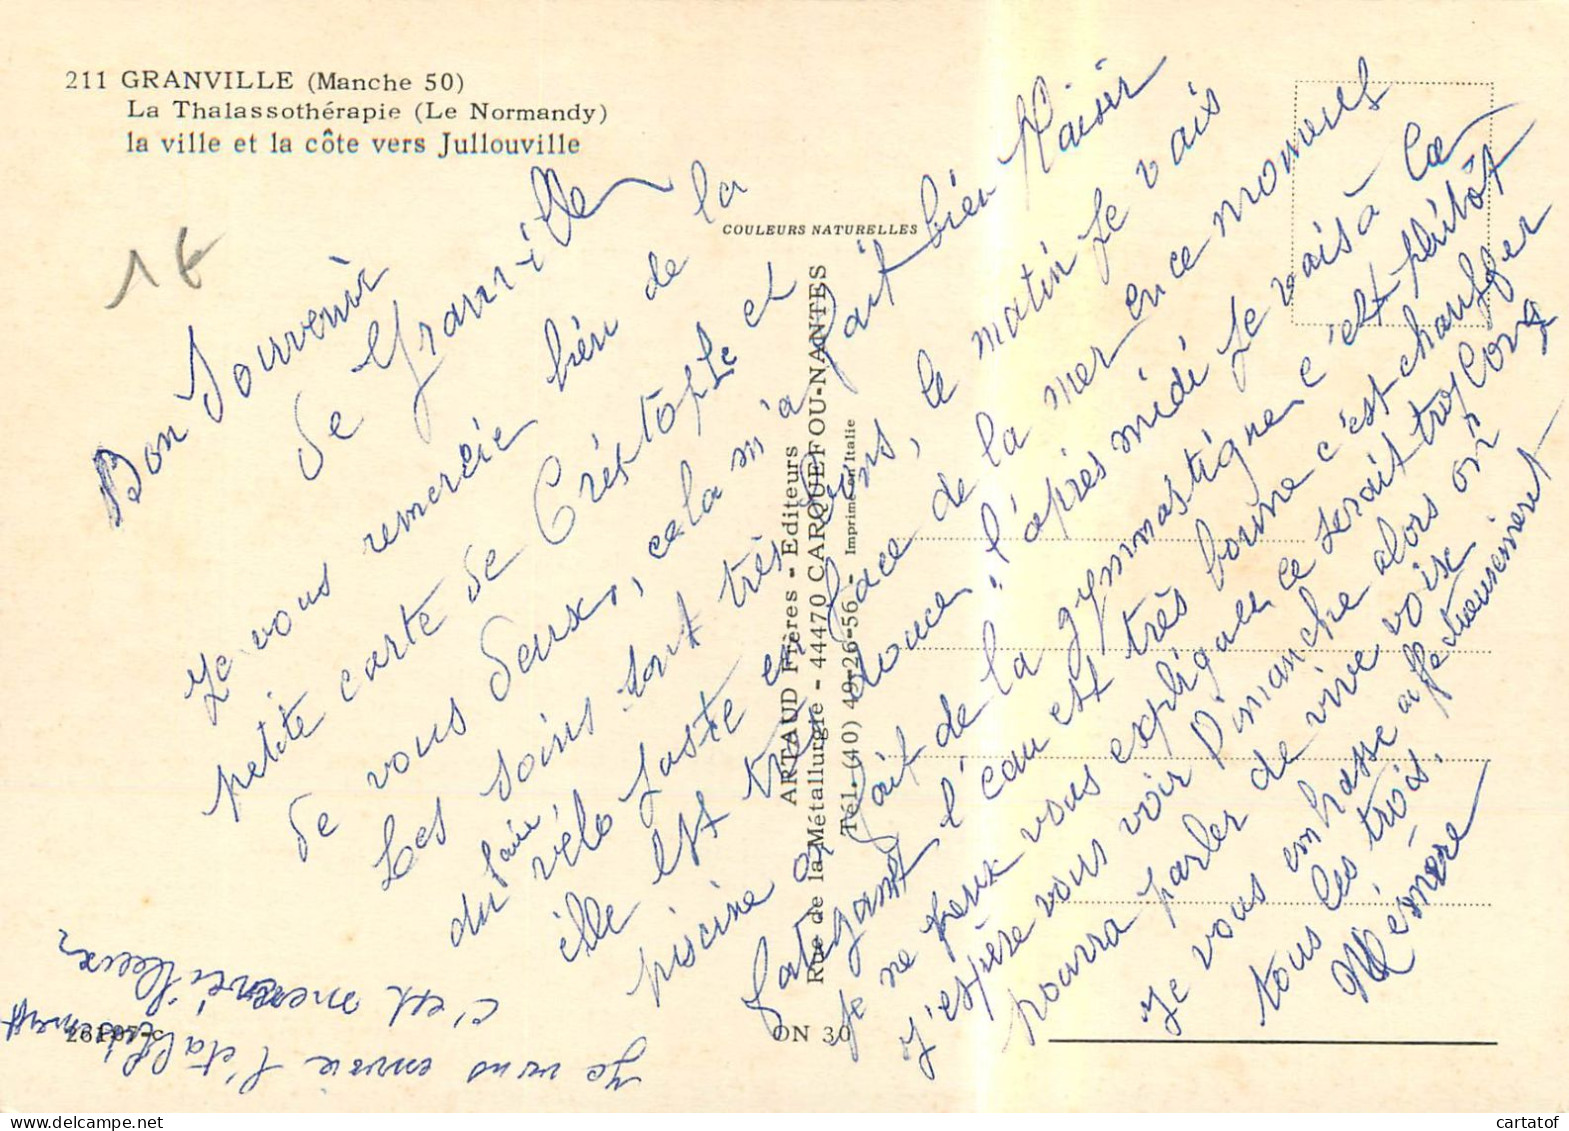 211 GRANVILLE (Manche 50)
La Thalassothérapie (Le Normandy)
la ville et la côte vers Jullouville
1 €
COULEURS NATURELLES
ARTAUD Frères - Editeurs
Rue de la Métallurgie - 44470 CARQUEFOU-NANTES
Tél. (40) 49-26-56 - Imprimé en Italie
ON 30
Bon Souvenir
de Granville
Je vous remercie bien de la
petite carte de Cristophe et
de vous deux, cela m'a fait bien plaisir
Les soins sont très bons, le matin je vais
faire
du vélo juste en face de la mer en ce moment
elle est très douce, l'après midi je vais à la
piscine on fait de la gymmastique c'est plutôt
fategant l'eau est très bonne c'est chauffer
je ne peux vous expliquer ce serait trop long
j'espère vous voir Dimanche alors on
pourra parler de vive voix
Je vous embrasse affectueusement
tous les trois.
Mémère
Je vous envoie l'établissement
c'est merveilleux
cartatof